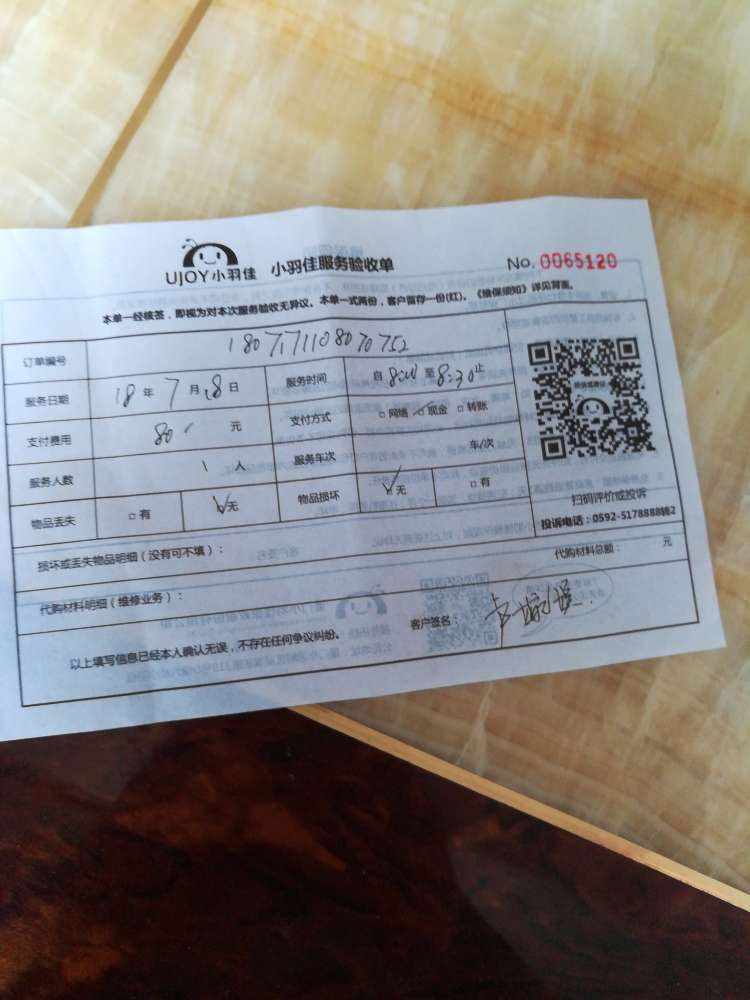 UJOY小羽佳 小羽佳服务验收单 No. 0065120
本单一经核签，即视为对本次服务验收无异议。本单一式两份，客户留存一份(红)。《维保须知》详见背面。
订单编号 1807171108070752
服务日期 18 年 7 月 18 日 服务时间 自 8:00 至 8:30 止
支付费用 80 元 支付方式 □ 网络 □ 现金 □ 转账
服务人数 1 人 服务车次 车/次
物品丢失 □ 有 □ 无 物品损坏 □ 无 □ 有
扫码评价或投诉
投诉电话：0592-5178888转2
损坏或丢失物品明细（没有可不填）：
代购材料明细（维修业务）： 代购材料总额： 元
以上填写信息已经本人确认无误，不存在任何争议纠纷。 客户签名：